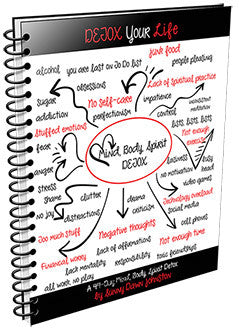 DETOX Your Life
junk food
alcohol
you are last on To Do list
people pleasing
sugar
obsessions
Lack of Spiritual practice
addiction
No Self-care
impatience
inconsistent motivation
perfectionism
control
Stuffed emotions
lists, lists, lists
fear
Not enough exercise
anger
Mind, Body, Spirit
DETOX
business
busy mind
stress
no motivation
head
shame
clutter
video games
no joy
distractions
drama
Technology overload
criticism
social media
Too much Stuff
Negative thoughts
cell phones
Financial worry
lack of affirmations
Not enough time
lack mentality
responsibility
toxic friendships
all work no play
A 44-Day Mind, Body, Spirit Detox
by Sunny Dawn Johnston